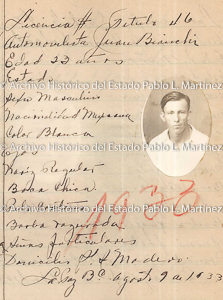 Licencia # Septubre 46
Automovilista Juan Bianchi
Edad 22 años
Estado
Archivo Histórico del Estado Pablo L. Martínez
Sexo Masculino
Nacionalidad Mexicana
Color Blanco
Ojos
Archivo Histórico del Estado Pablo L. Martínez
Nariz Regular
Boca Chica
Pelo
1933
Barba rasurada
Archivo Histórico del Estado Pablo L. Martínez
Señas particulares
Madero
La Paz Bc. Agosto 9 de 1933